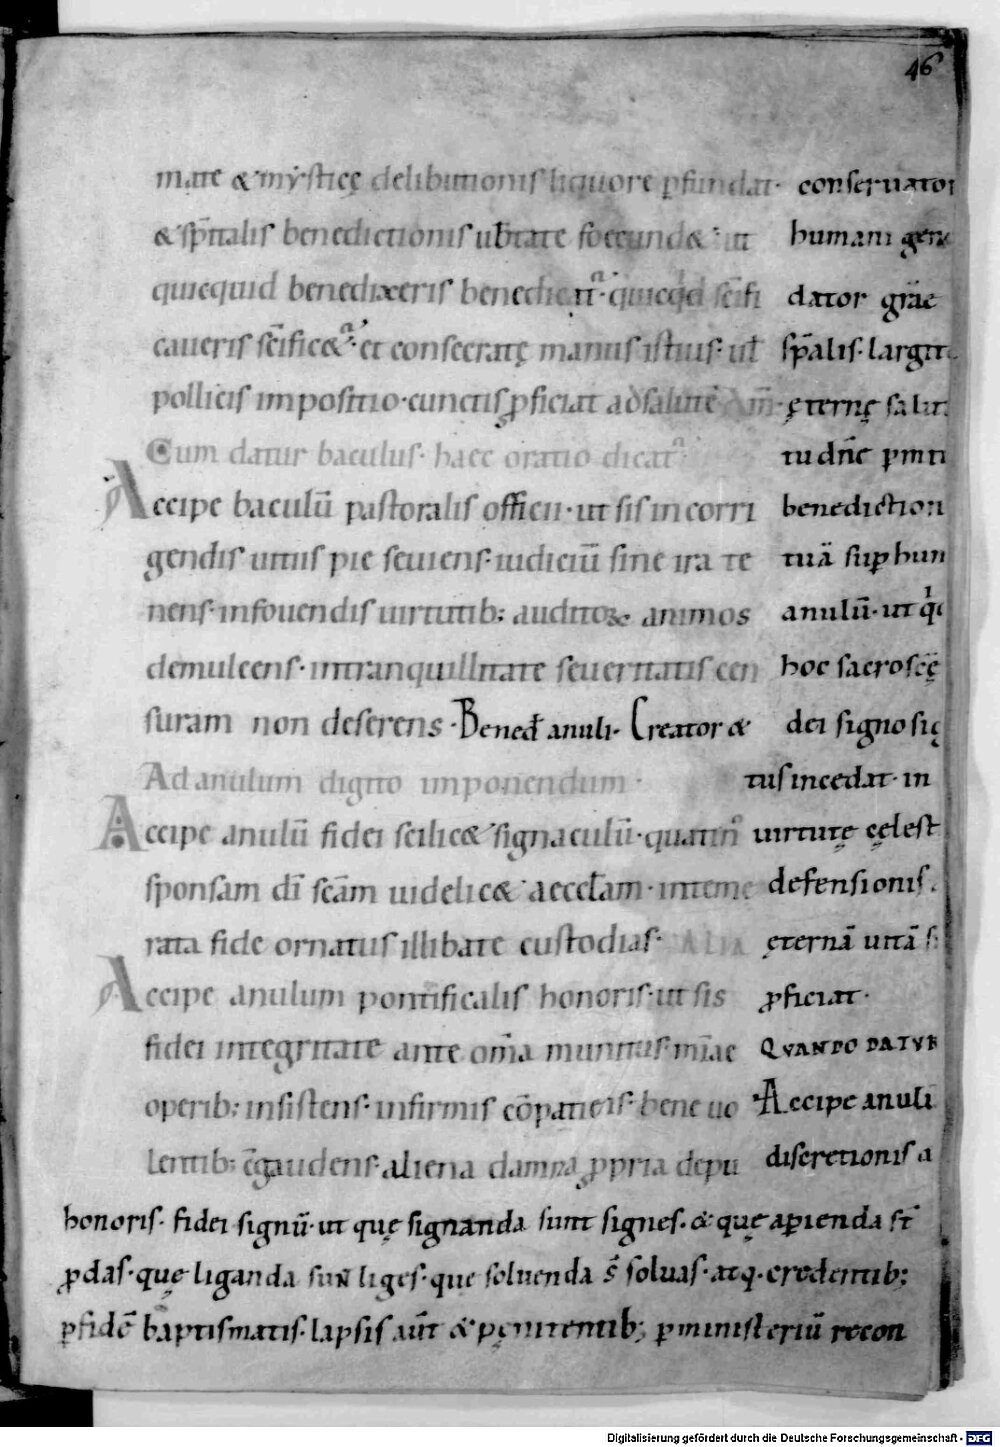 46
mate & mysticę delibutionis liquore ꝑfundat·
& sp̄italis benedictionis ub̄tate foecund& · ut
quicquid benedixeris benedicatᷣ· quicqd sc̄ifi
caueris sc̄ific&ᷣ· et consecratę manus istius· ul̄
pollicis impositio· cunctis ꝓficiat ad salutē Am̄·
Cum datur baculus· haec oratio dicatᷣ
Accipe baculū pastoralis officii· ut sis in corri
gendis uitiis pie seuiens· iudiciū sine ira te
nens· in fouendis uirtutib; auditoꝝ animos
demulcens· in tranquillitate seueritatis cen
suram non deserens· Bened̄ anuli· Creator &
Ad anulum digito imponendum·
Accipe anulū fidei scilic& signaculū· quatin᷒
sponsam dī sc̄am uidelic& aeccl̄am· inteme
rata fide ornatus illibate custodias· ALIA
Accipe anulum pontificalis honoris· ut sis
fidei integritate ante om̄a munitus· mīae
operib; insistens· infirmis cōpatiens· beneuo
lentib; c̄gaudens· aliena damna ꝓpria depu
conseruator
humani gene
dator grāe
sp̄alis· largit
ęternę salut
tu dn̄e ꝑmit
benediction
tuā suꝑ hun
anulū· ut q
hoc sacrosc̄ę
dei signo sig
tus incedat· in
uirtutę cęlest
defensionis
ęternā uitā
ꝓficiat·
QVANDO DATVR
Accipe anuli
discretionis a
honoris· fidei signū· ut quę signanda sunt signes· & quę aꝑienda st̄
ꝓdas· quę liganda sun liges· que soluenda s̄ soluas· atq· credentib;
ꝑ fidē baptismatis· lapsis aūt & pęnitentib; ꝑ ministeriū recon
Digitalisierung gefördert durch die Deutsche Forschungsgemeinschaft - DFG